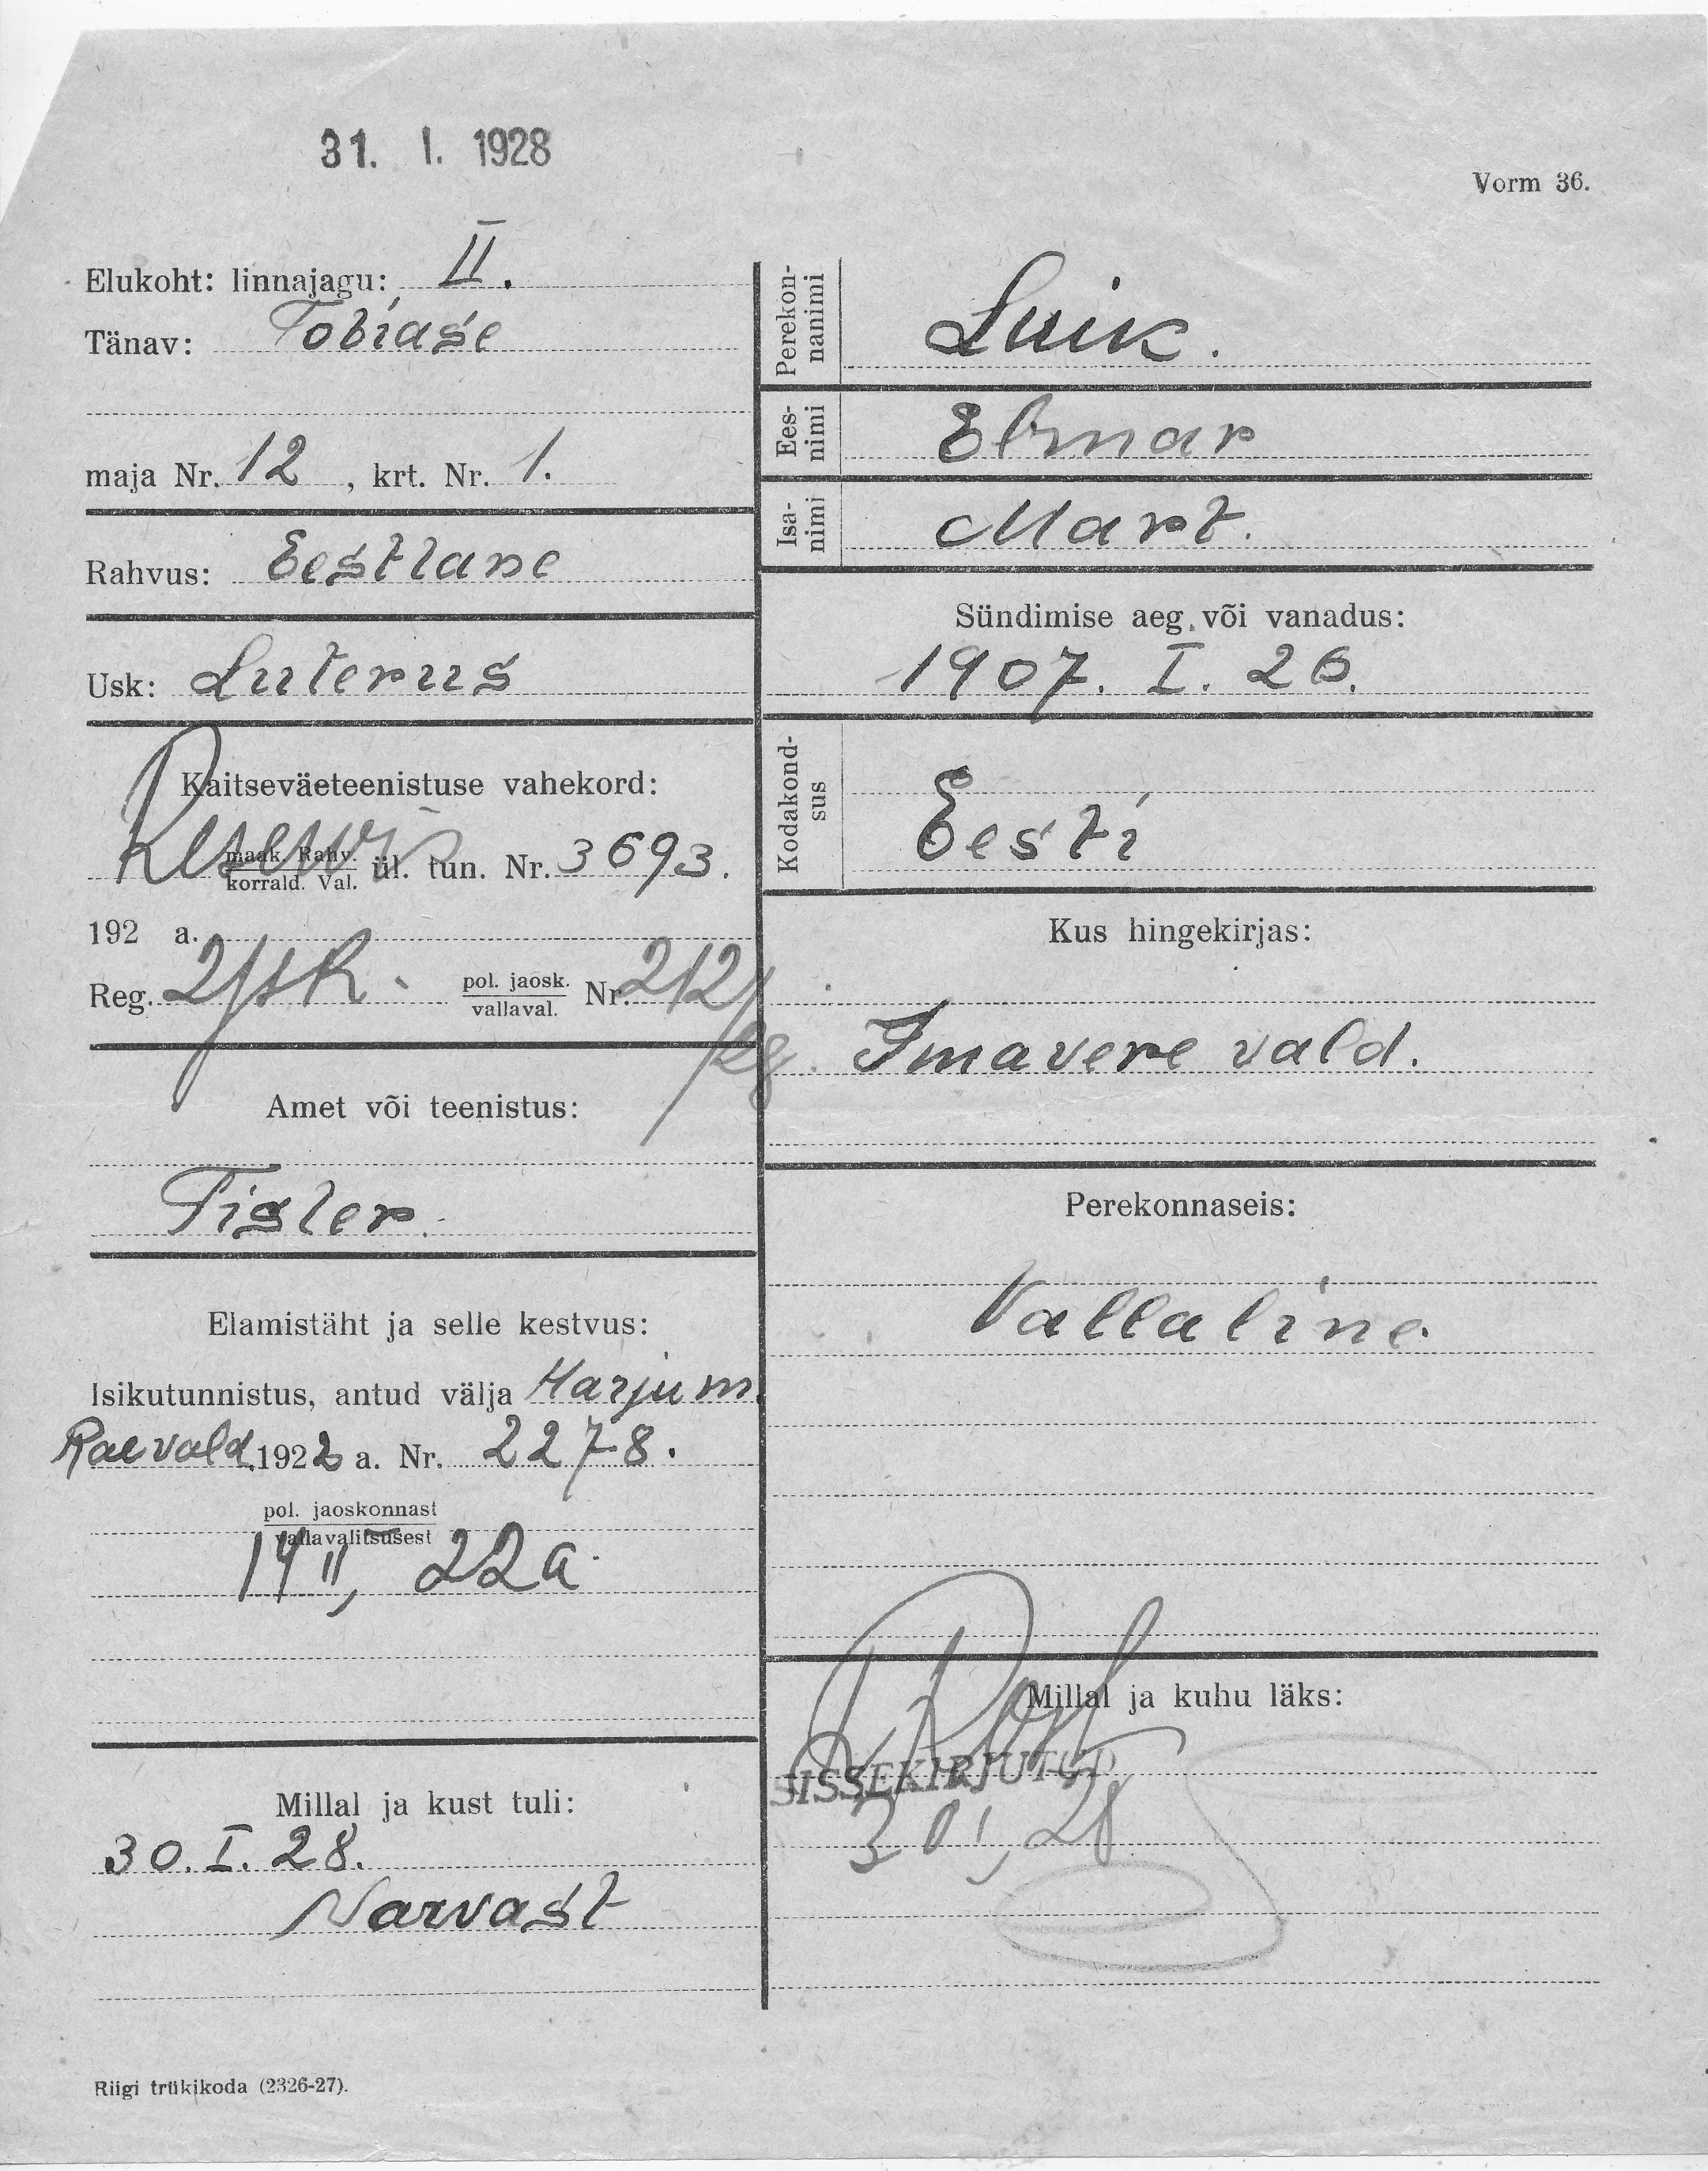 31. I. 1928
Vorm 36.
Elukoht: linnajagu: II.
Tänav: Tobiase
maja Nr. 12, krt. Nr. 1.
Rahvus: Eestlane
Usk: Luterus
Kaitseväeteenistuse vahekord:
maak. Rahv.
korrald. Val. ül. tun. Nr. 3693.
192 a.
Reg. 2/jsk. pol. jaosk. Nr. 212/
vallaval.
28.
Amet või teenistus:
Tisler.
Elamistäht ja selle kestvus:
Isikutunnistus, antud välja Harju m.
Rae vald. 1922 a. Nr. 2278.
pol. jaoskonnast
vallavalitsusest
14 II, 22 a.
Millal ja kust tuli:
30. I. 28.
Narvast
Riigi trükikoda (2326-27).
Perekon-
nanimi
Luik.
Ees-
nimi
Elmar
Isa-
nimi
Mart.
Sündimise aeg või vanadus:
1907. I. 26.
Kodakond-
sus
Eesti
Kus hingekirjas:
Imavere vald.
Perekonnaseis:
Vallaline.
Millal ja kuhu läks:
SISSEKIRJUTUD